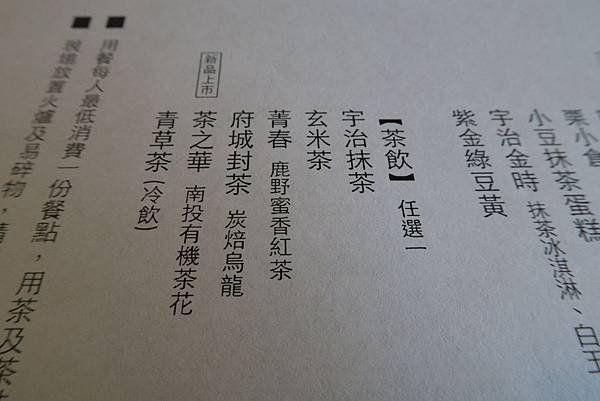 栗小倉
小豆抹茶蛋糕
宇治金時 抹茶冰淇淋、白玉
紫金綠豆黃
【茶飲】任選一
宇治抹茶
玄米茶
菁春 鹿野蜜香紅茶
府城封茶 炭焙烏龍
新品上市
茶之華 南投有機茶花
青草茶(冷飲)
■ 用餐每人最低消費一份餐點，用茶及茶
■ 現場放置火爐及易碎物，請